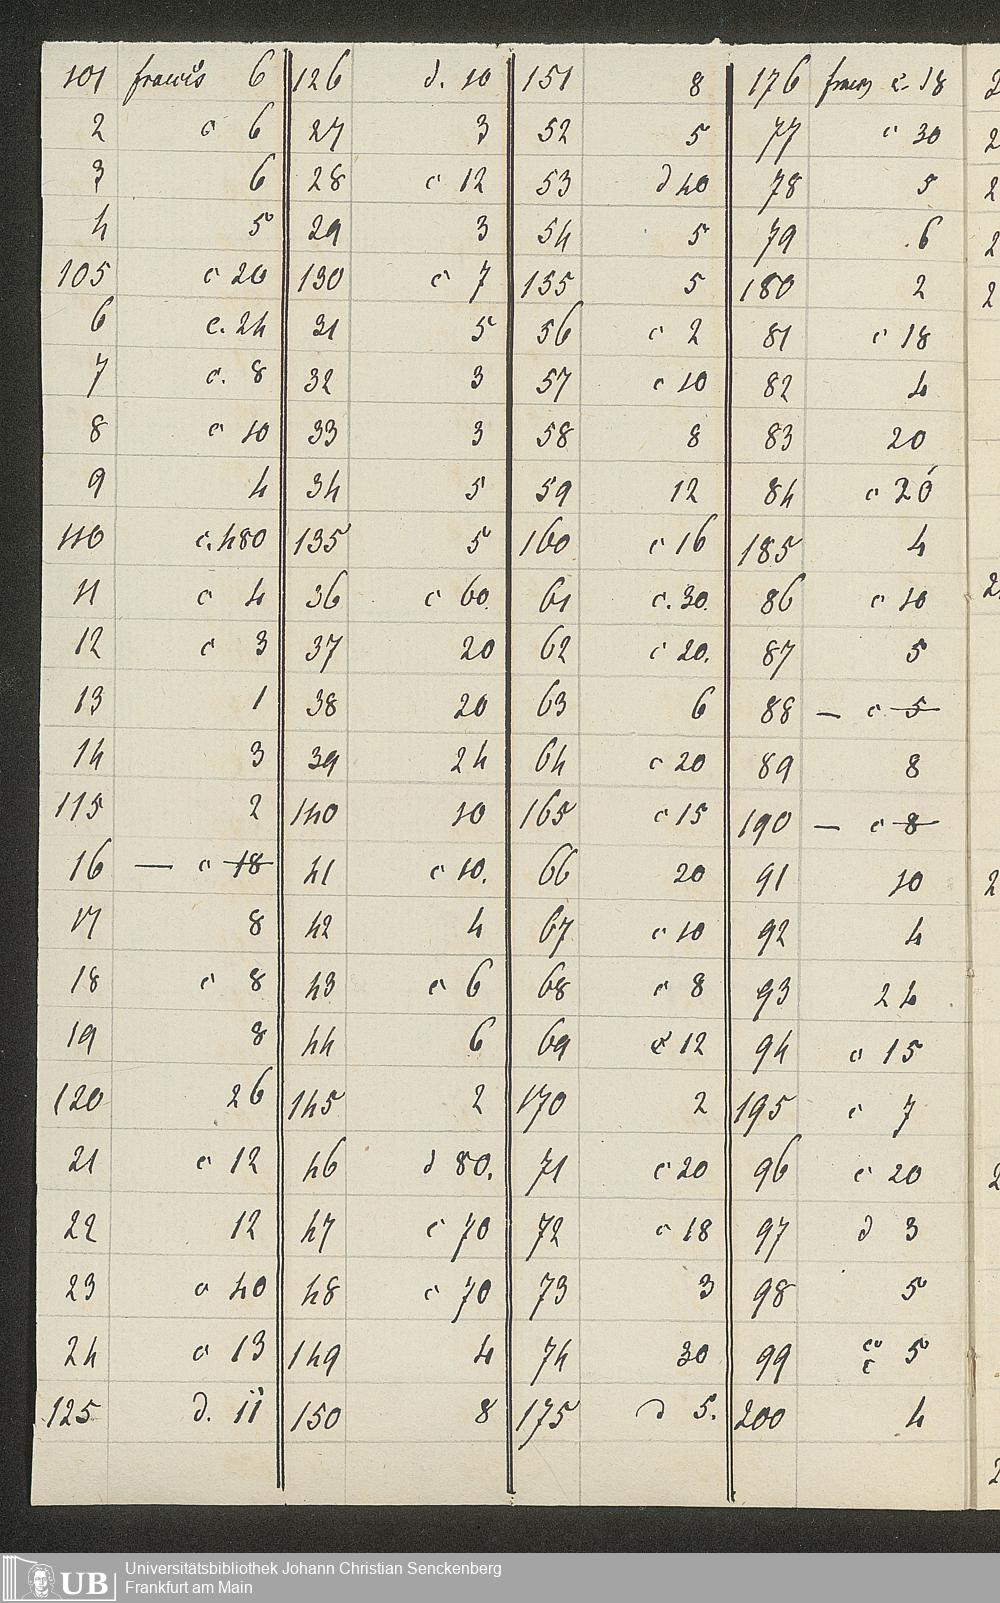 101 francs 6 126 d. 10 151 8 176 francs c. 18
2 c 6 27 3 52 5 77 c 30
3 6 28 c 12 53 d 40 78 5
4 5 29 3 54 5 79 6
105 c 20 130 c 7 155 5 180 2
6 c. 24 31 5 56 c 2 81 c 18
7 c. 8 32 3 57 c 10 82 4
8 c 10 33 3 58 8 83 20
9 4 34 5 59 12 84 c 20
110 c. 480 135 5 160 c 16 185 4
11 c 4 36 c 60 61 c. 30 86 c 10
12 c 3 37 20 62 c 20. 87 5
13 1 38 20 63 6 88 — c 5
14 3 39 24 64 c 20 89 8
115 2 140 10 165 c 15 190 — c 8
16 — c 18 41 c 10. 66 20 91 10
17 8 42 4 67 c 10 92 4
18 c 8 43 c 6 68 c 8 93 24
19 8 44 6 69 c 12 94 c 15
120 26 145 2 170 2 195 c 7
21 c 12 46 d 80. 71 c 20 96 c 20
22 12 47 c 70 72 c 18 97 d 3
23 c 40 48 c 70 73 3 98 5
24 c 13 149 4 74 30 99 c 5
125 d. 11 150 8 175 d 5. 200 4
UB Universitätsbibliothek Johann Christian Senckenberg
Frankfurt am Main